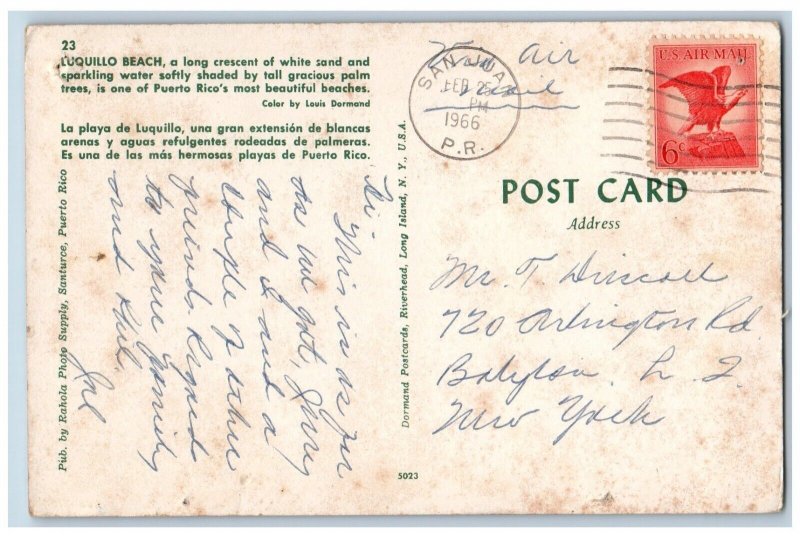 23
LUQUILLO BEACH, a long crescent of white sand and
sparkling water softly shaded by tall gracious palm
trees, is one of Puerto Rico's most beautiful beaches.
Color by Louis Dormand
La playa de Luquillo, una gran extensión de blancas
arenas y aguas refulgentes rodeadas de palmeras.
Es una de las más hermosas playas de Puerto Rico.
Pub. by Rahola Photo Supply, Santurce, Puerto Rico
Hi
This is as far
as we got, Jerry
and I and a
couple of other
friends. Regards
to your family
and Phil.
Dormand Postcards, Riverhead, Long Island, N. Y., U.S.A.
5023
Via Air
Mail
SAN JUAN
FEB 25
PM
1966
P.R.
U.S. AIR MAIL
6c
POST CARD
Address
Mr. T. Driscoll
720 Arlington Rd
Babylon L. I.
New York